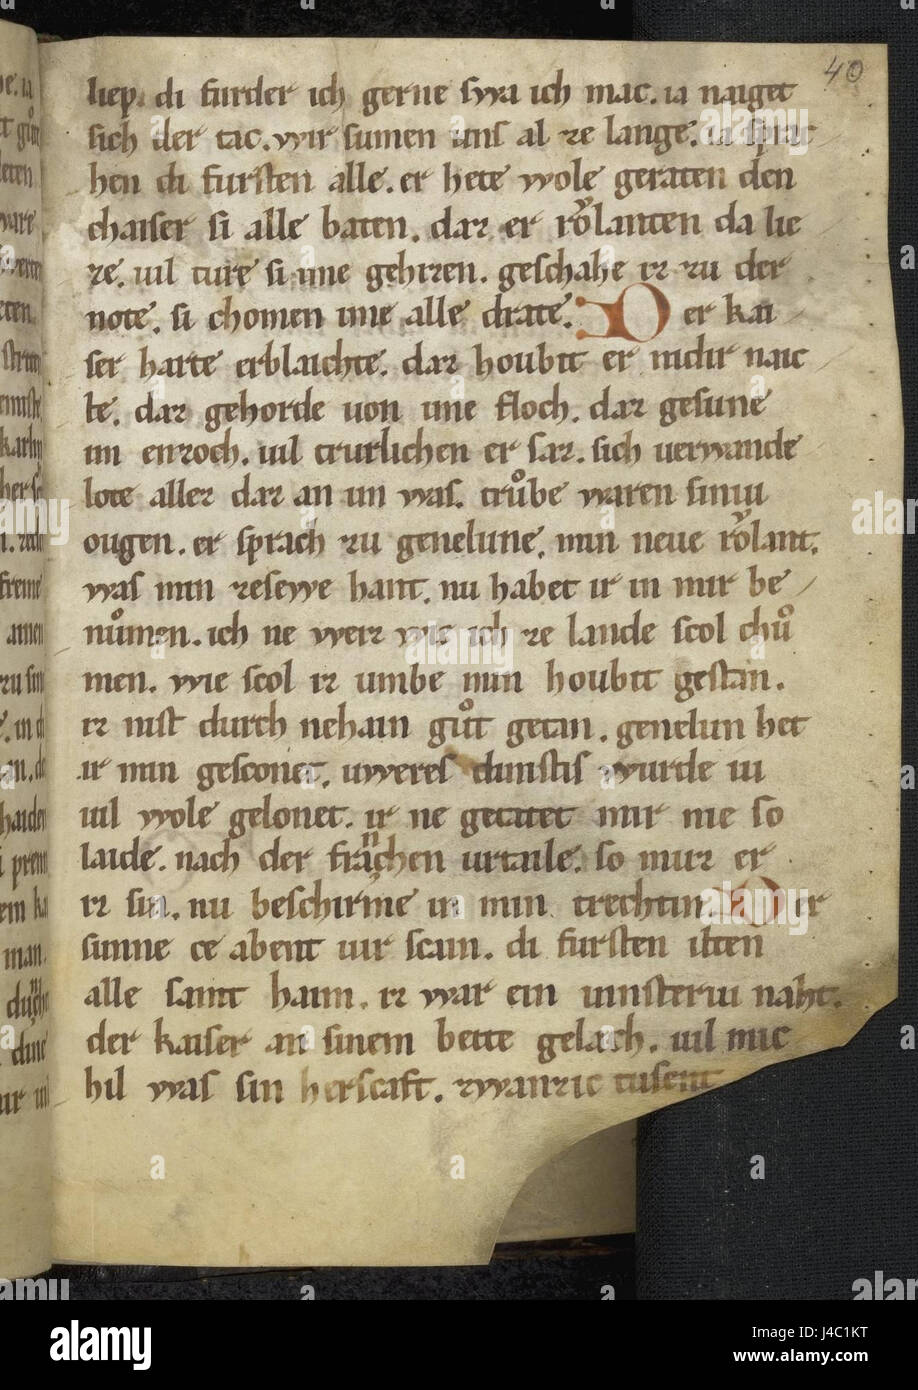 40
liep. di furder ich gerne swa ich mac. ia naiget
sich der tac. wir sumen uns al ze lange. ia sprac
hen di fursten alle. er hete wole geraten den
chaiser si alle baten. daz er růlanten da lie
ze. uil ture si ime gehizen. geschahe iz zu der
note. si chomen ime alle drate. Der kai
ser harte erblaichte. daz houbit er nidir naic
te. daz gehorde uon ime floch. daz gesune
im enzoch. uil trurlichen er saz. sich uerwande
lote allez daz an im was. trůbe waren siniu
ougen. er sprach zu genelune. min neue rolant.
was min zesewe hant. nu habet ir in mir be
nůmen. ich ne weiz wie ich ze lande scol chů
men. wie scol iz umbe min houbit gestan.
iz nist durch nehain gůt getan. genelun het
ir min gesconet. uweres dinstis wurde iu
uil wole gelonet. ir ne getatet mir nie so
laide. nach der franchen urtaile. so muz er
iz sin. nu beschirme in min trechtin. Der
sunne ce abent uir scain. di fursten ilten
alle samt haim. iz war ein uinsteriu naht.
der kaiser an sinem bette gelach. uil mic
hil was sin herscaft. zwanzic tusent
alamy
Image ID: J4C1KT
www.alamy.com